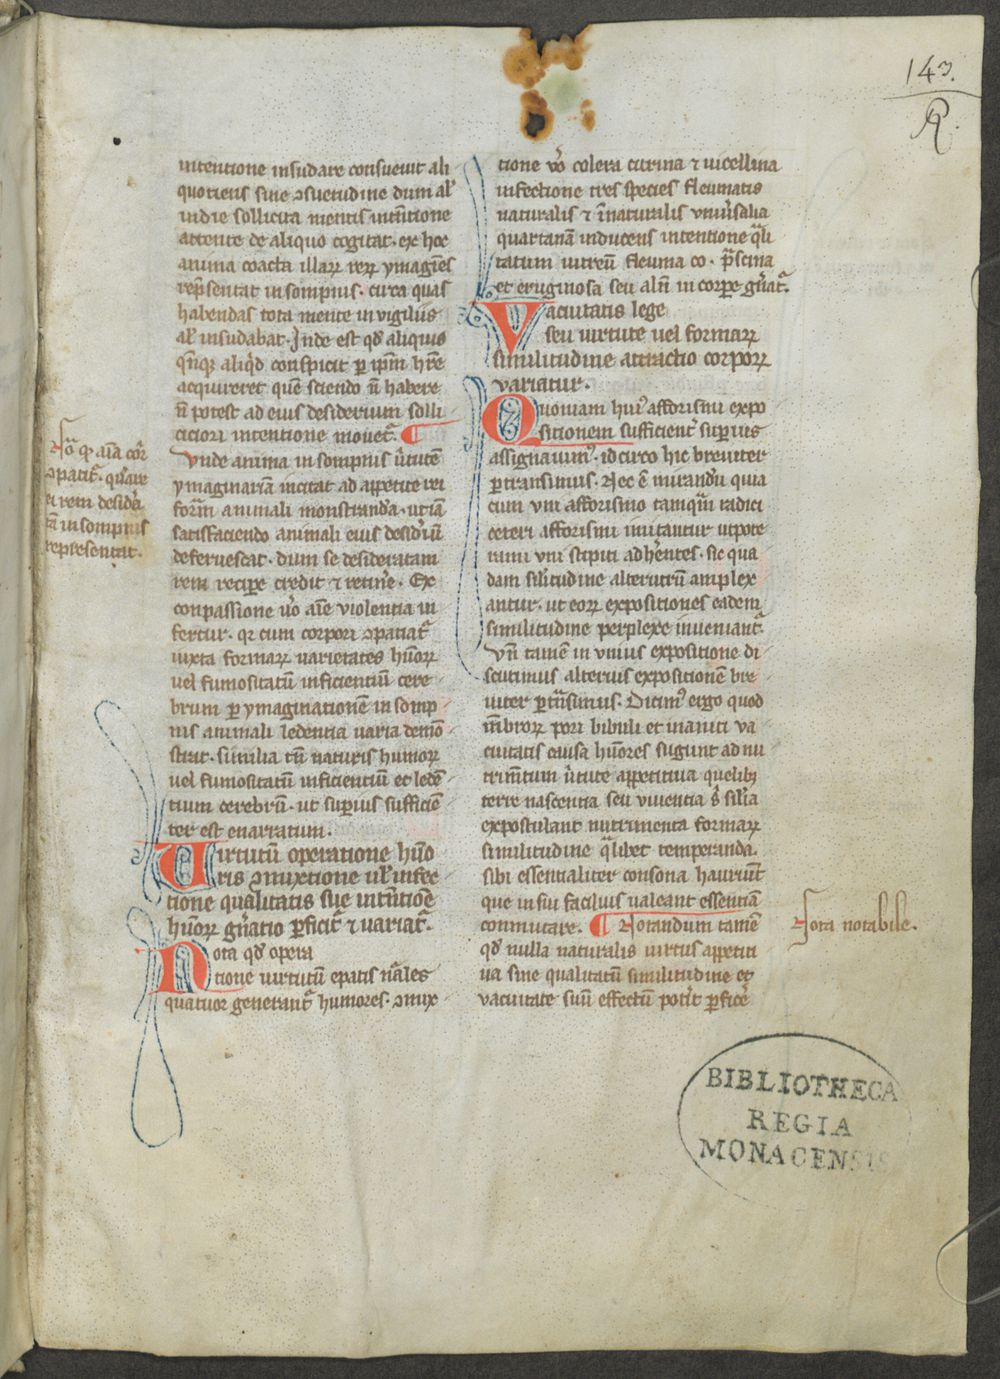 143.
intentione insudare consueuit ali
quotiens siue ɔsuetudine dum al'
indie sollicita mentis intẽtione
attente de aliquo cogitat. ex hoc
anima coacta illaꝝ reꝝ ymagĩes
rep̃sentat in sompnis. circa quas
habendas tota mente in vigiliis
al' insudabat. Inde est qđ aliquis
aliqͥd conspicit ꝑ ip̃m
acquireret quẽ sciendo ñ habere
ñ potest ad eius desiderium solli
cictori intentione mouet᷑. ¶
Vnde anima in sompnis ũtutẽ
ymaginariã incitat ad appetite rei
formã animali monstranda. ut iã
satisfaciendo animali eius desid̾iũ
deferuescat. dum se desideratam
rem recipe credit ⁊ retin̾e. Ex
conpassione ũo aĩe violentia in
fertur. qꝛ cum corpori ɔpatiat᷑
iuxta formaꝝ uarietates hũoꝝ
uel fumositatũ inficientiũ cere
brum ꝑ ymaginationẽ in somp
nis animali ledentia uaria demõ
strat. similia tñ naturis humoꝝ
uel fumositatũ inficientiũ et ledẽ
tium cerebrũ. ut suꝑius sufficiẽ
ter est enarratum.
Uirtutũ operatione hũo
ris ɔmixtione ul' infec
tione qualitatis sue intẽtiõe
hũoꝝ gñatio ꝑficit᷑ ⁊ uariat᷑.
Nota qđ opera
tione uirtutũ epatis nãles
quatuor generant᷑ humores. ɔmix
tione ũo colera citrina ⁊ uitellina
infectione tres species fleumatis
naturalis ⁊ ĩnaturalis vniũsalia
quartanã inducens intentione qͣli
tatum uitreũ fleuma co. p̃scina
et eruginosa seu alñ in corpe gñat᷑.
Vacuitatis lege
seu uirtute uel formaꝝ
similitudine attractio corpoꝝ
variatur.
Quoniam huiꝰ afforismi expo
sitionem sufficient̾ suꝑius
assignauimꝰ. idcirco hic breuiter
ꝑtransimus. Nec ẽ mirandũ quia
cum vni afforismo tamquã radici
ceteri afforismi imitantur utpote
rami vni stipiti adh̾entes. sic qua
dam sil'itudine alterutrũ amplex
antur. ut eoꝝ expositiones eadem
similitudine perplexe inueniant᷑.
Vñ tamẽ in vnius expositione di
scutimus alterius expositionẽ bre
uiter ꝑtñsimus. Dicimꝰ ergo quod
mẽbroꝝ pori bibuli et inaniti va
cuitatis causa hũores sugunt ad nu
trimẽtum ũtute appetitiua queliꝫ
terre nascentia seu viuentia s̾ sil'ia
expostulant nutrimenta formaꝝ
similitudine qͣlibet temperanda.
sibi essentialiter consona hauriũt
que in sui facilius ualeant essentiã
conmutare. ¶ Notandum tamẽ
qđ nulla naturalis uirtus appetiti
ua sine qualitatũ similitudine et
vacuitate suũ effectũ potĩt ꝑfic̾e
aĩa cor̾
ɔpatit᷑.
ei rem desid̾a
tã in sompnis
representat.
Nota notabile.
BIBLIOTHECA
REGIA
MONACENSIS